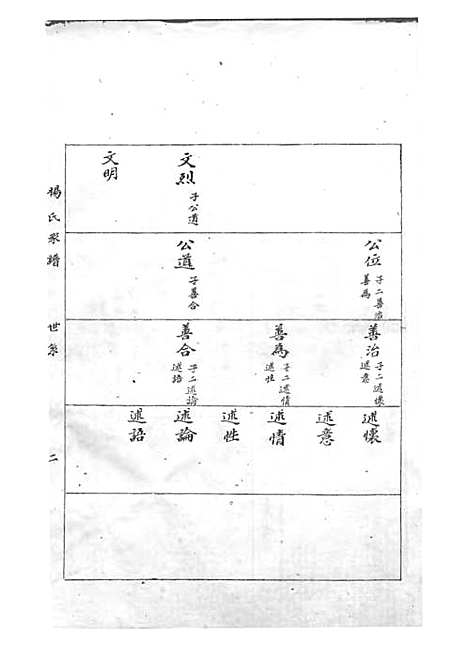 文烈 子公道
文明
公位 子二善治
善為
公道 子善合
善治 子二述懷
述意
善為 子二述情
述性
善合 子二述論
述語
述懷
述意
述情
述性
述論
述語
楊氏家譜 世系 二